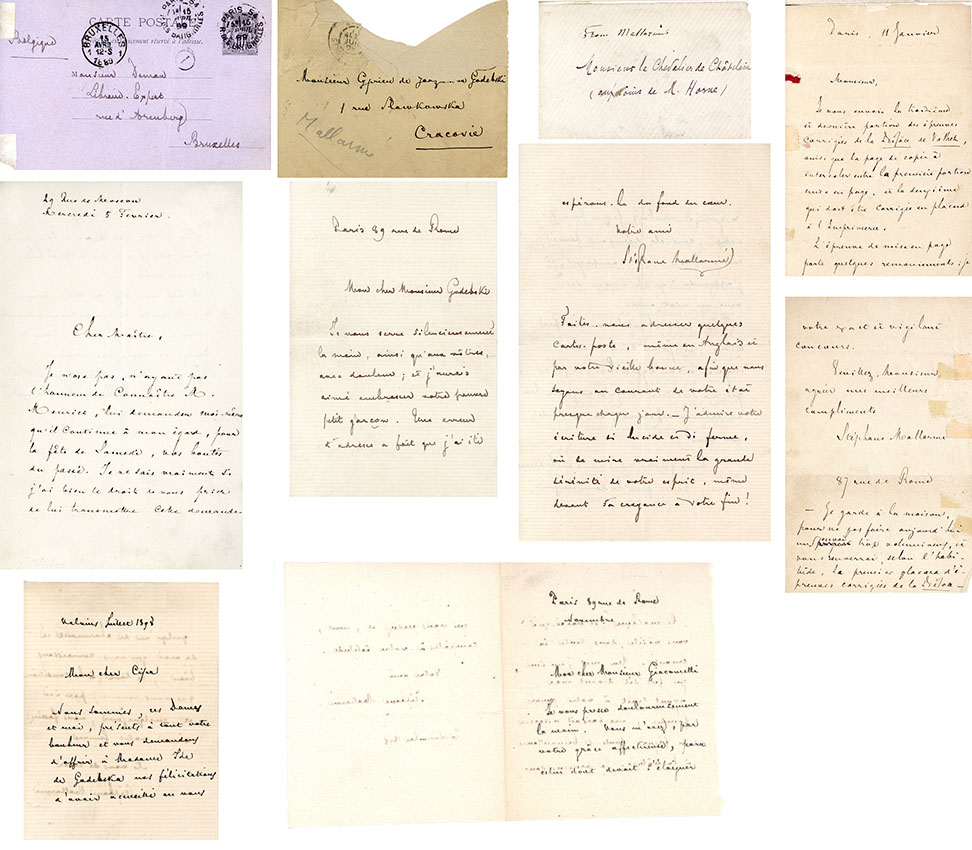 CARTE POSTALE
Ce côté est exclusivement réservé à l'adresse.
BRUXELLES
15
AVRIL
12-S
1889
PARIS 54
R. DES BATIGNOLLES
Belgique
Monsieur Deman
Libraire-Expert
rue d'Arenberg
Bruxelles
Monsieur Cyprien de Godebski
1 rue Slawkowska
Cracovie
Mallarmé
From Mallarmé
Monsieur le Chevalier de Châtelain
(aux soins de M. Horne)
Paris, 11 Janvier
Monsieur,
Je vous envoie la troisième
et dernière portion des épreuves
corrigées de la Préface de Vathek,
ainsi que la page de copie à
intercaler entre la première portion
mise en page, et la deuxième
qui doit être corrigée en placard
à l'Imprimerie.
L'épreuve de mise en page
porte quelques remaniements: je
29 Rue de Moscou
Mercredi 5 Février.
Cher Maître,
Je n'ose pas, n'ayant pas
l'honneur de connaître M.
Meurice, lui demander moi-même
qu'il continue à mon égard, pour
la fête de Samedi, vos bontés
du passé. Je ne sais vraiment si
j'ai bien le droit de vous prier
de lui transmettre cette demande
Paris 89 rue de Rome
Mon cher Monsieur Godebski
Je vous serre silencieusement
la main, ainsi qu'aux vôtres,
avec douleur; et j'aurais
aimé embrasser votre pauvre
petit garçon. Une erreur
d'adresse a fait que j'ai été
espérons-le du fond du cœur.
Votre ami
Stéphane Mallarmé
Faites-nous adresser quelques
cartes-poste, même en Anglais et
par votre vieille bonne, afin que nous
soyons au courant de votre état
presque chaque jour. — J'admire votre
écriture si lucide et si ferme,
où se mire vraiment la grande
sérénité de votre esprit, même
devant sa croyance à votre fin!
votre exact et vigilant
concours.
Veuillez, Monsieur,
agréer mes meilleurs
compliments
Stéphane Mallarmé
87 rue de Rome
— Je garde à la maison,
pour ne pas faire aujourd'hui
un envoi trop volumineux, et
vous renverrai, selon l'habi-
tude, le premier placard d'é-
preuves corrigées de la Préfa-
Valvins Juillet 1898
Mon cher Cipa
Nous sommes, ces Dames
et moi, présents à tout votre
bonheur et vous demandons
d'offrir à Madame Ida
de Godebska nos félicitations
d'avoir accueilli en vous
Paris 89 rue de Rome
Novembre
Mon cher Monsieur Giacomelli
Je vous presse douloureusement
la main. Vous m'avez, par
votre grâce affectueuse, paru
celui dont devait s'éloigner